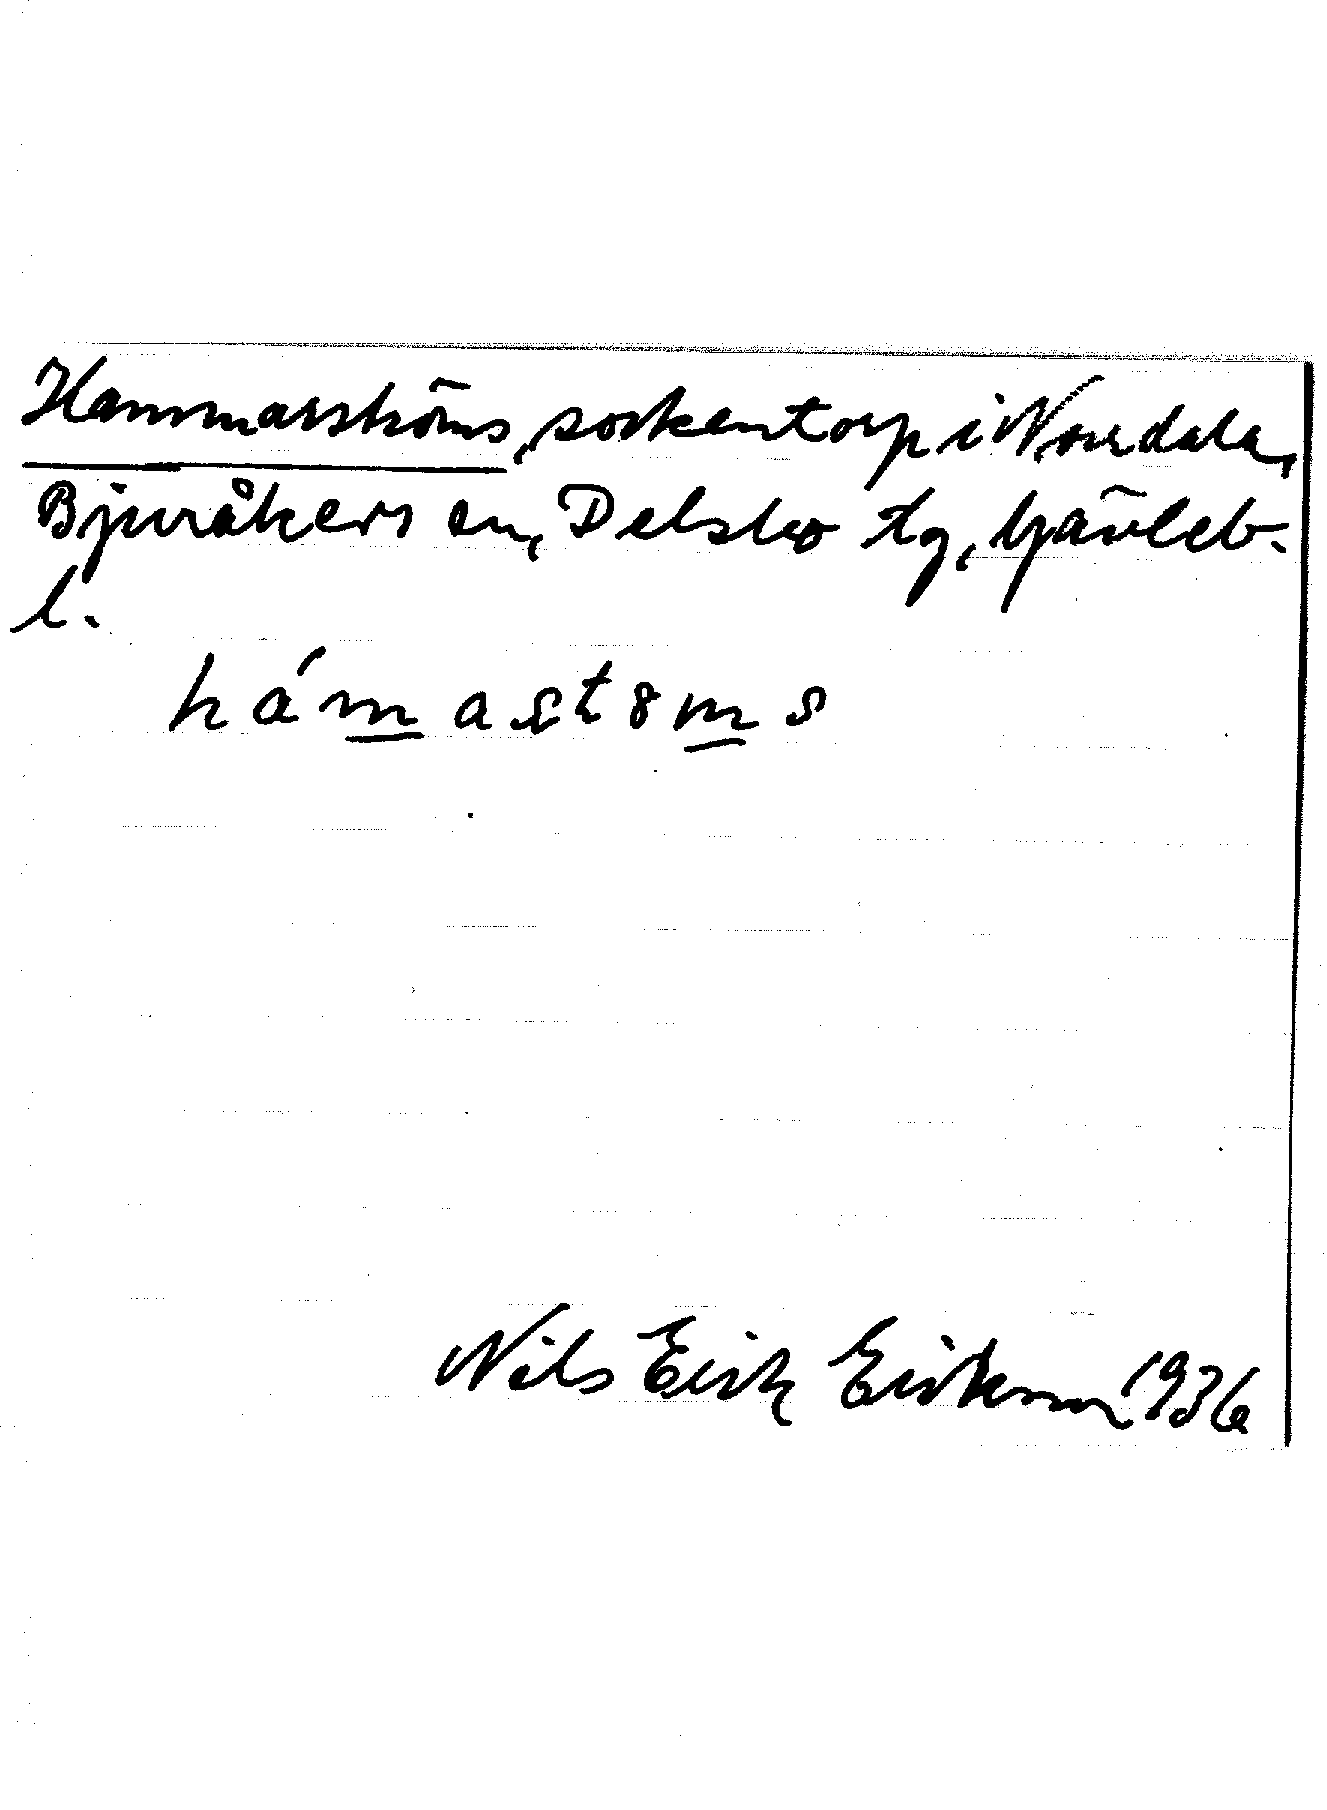 Hammarströms, sockentorp i Norrdala,
Bjuråkers sn, Delsbo tg, Gävleb.
l.
hámastöms
Nils Erik Eriksson 1936